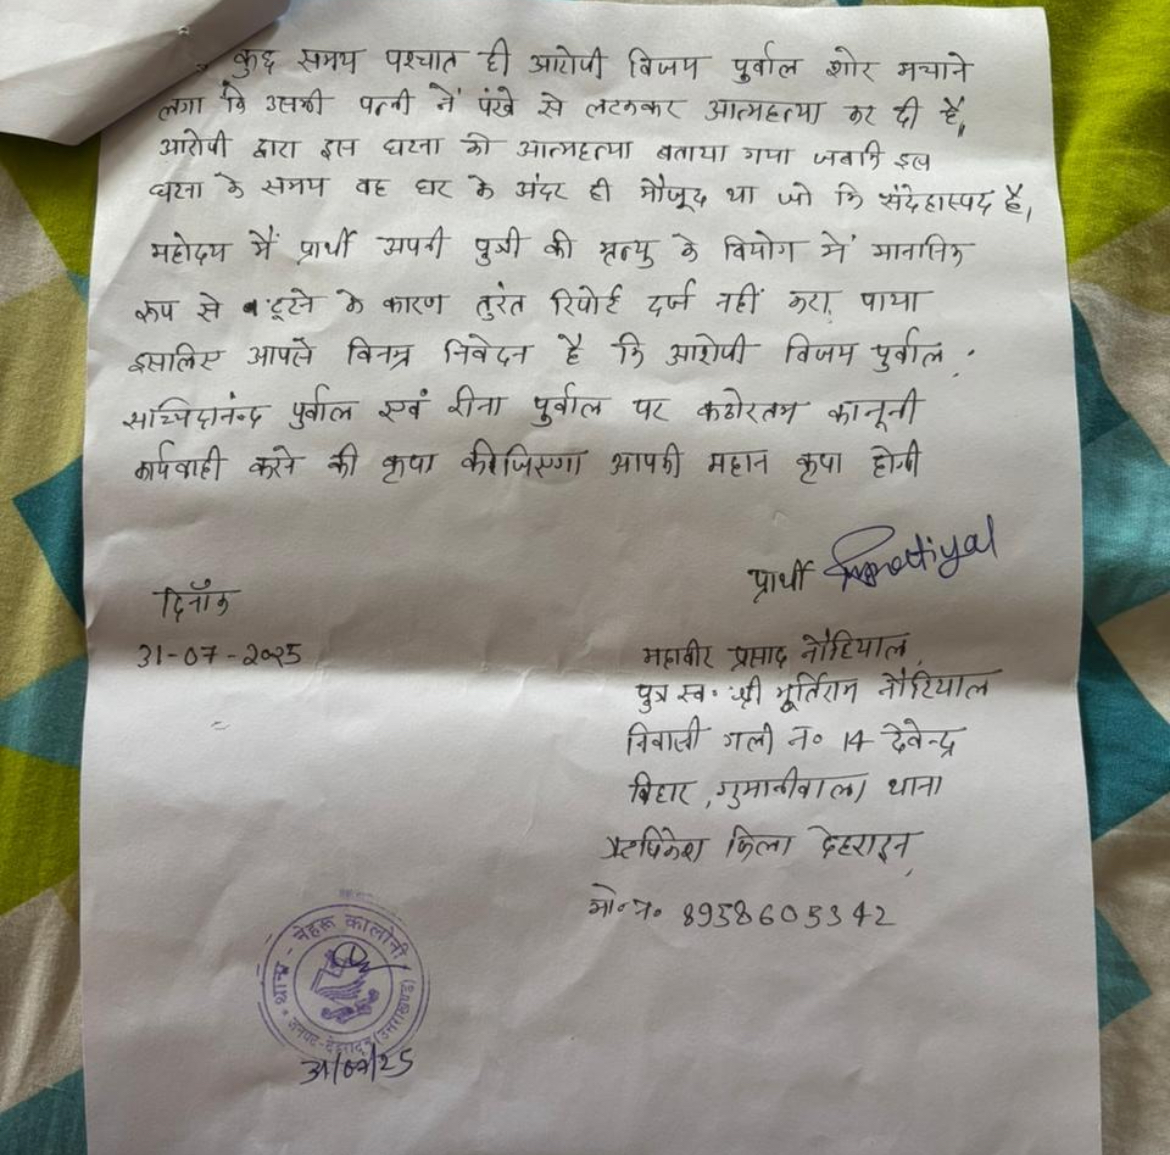 कुछ समय पश्चात ही आरोपी विजय पुर्वाल शोर मचाने
लगा कि उसकी पत्नी नें पंखे से लटककर आत्महत्या कर दी है,
आरोपी द्वारा इस घटना को आत्महत्या बताया गया जबकि इस
घटना के समय वह घर के अंदर ही मौजूद था जो कि संदेहास्पद है,
महोदय मैं प्रार्थी अपनी पुत्री की मृत्यु के वियोग में मानसिक
रूप से टूटने के कारण तुरंत रिपोर्ट दर्ज नहीं करा पाया
इसलिए आपसे विनम्र निवेदन है कि आरोपी विजय पुर्वाल,
सच्चिदानंद पुर्वाल एवं रीना पुर्वाल पर कठोरतम कानूनी
कार्यवाही करने की कृपा कीजिएगा आपकी महान कृपा होगी
प्रार्थी
दिनाँक
31-07-2025
महावीर प्रसाद नौटियाल
पुत्र स्व. श्री मूर्तिराम नौटियाल
निवासी गली नं० 14 देवेन्द्र
विहार, गुमानीवाला, थाना
ऋषिकेश जिला देहरादून,
मो.न० 8958605342
थाना - नेहरू कालोनी
जनपद-देहरादून (उत्तराखण्ड)
31/07/25